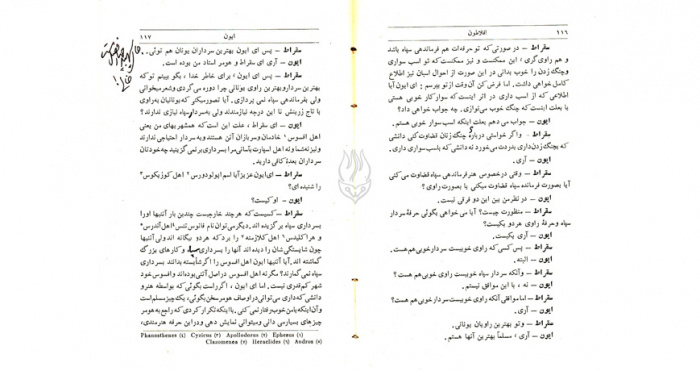 ۱۱۶ افلاطون
سقراط – در صورتی که تو حرفه‌ات هم فرماندهی سپاه باشد
و هم راوی‌گری، این ممکنست و نیز ممکنست که تو سب سواری
و چنگ زدن را خوب بدانی در این صورت از احوال اسبان نیز اطلاع
کامل خواهی داشت. اما فرض کن آن‌وقت از تو بپرسم : ای ایون آیا
اطلاعی که از اسب داری در اثر اینست که سوار کار خوبی هستی
یا بعلت اینست که چنگ خوب می‌نوازی. چه جواب خواهی داد؟
ایون – جواب می دهم بعلت اینکه اسب سوار خوبی هستم.
سقراط – و اگر خواستی درباره چنگ زنان قضاوت کنی دانشی
که بچنگ زدن داری بدردت می‌خورد نه دانشی که باسب سواری داری.
ایون – آری.
سقراط – وقتی درخصوص هنر فرماندهی سپاه قضاوت می کنی
آیا بصورت فرمانده سپاه قضاوت میکنی یا بصورت راوی ؟
ایون – در نظر من بین این دو فرقی نیست.
سقراط – منظورت چیست؟ آیا می خواهی بگوئی حرفۀ سردار
سپاه و حرفۀ راوی هر دو یکیست؟
ایون – آری، یکیست.
سقراط – پس کسی که راوی خوبیست سردار خوبی هم هست.
ایون – البته.
سقراط – و آنکه سردار سپاه خوبیست راوی خوبی هم هست؟
ایون – نه ، با این موافق نیستم.
سقراط – اما موافقی آنکه راوی خوبیست سردار خوبی هم هست؟
ایون – آری.
سقراط – و تو بهترین راویان یونانی.
ایون – آری ، مسلماً بهترین آنها هستم.
ایون ۱۱۷
سقراط – پس ای ایون بهترین سرداران یونان هم توئی..
ایون – آری ای سقراط و هومر استاد من بوده است.
سقراط – پس ای ایون ، برای خاطر خدا ، بگو ببینم تو که
بهترین سردار و بهترین راوی یونانی چرا دوره می گردی و شعر میخوانی
ولی بفرماندهی سپاه نمی پردازی. آیا تصور میکنی که یونانیان به راوی
با تاج زرینش تا این درجه نیازمندند ولی بسردار سپاه نیازی ندارند؟
ایون – ای سقراط، علت این است که همشهریهای من یعنی
اهل افسوس خادمان و سربازان آتن هستند و به سردار احتیاجی ندارند
و نیز نه شما و نه اهل اسپارت بآسانی مرا بسرداری بر نمی گزینید چه خودتان
سرداران بعدۀ کافی دارید.
سقراط – ای ایون عزیز آیا اسم اپولودورس اهل کوزیکوس
را شنیده ای؟
ایون – او کیست؟
سقراط – کسیست که هر چند خارجیست چندین بار آتنیها او را
بسرداری سپاه برگزیده اند. دیگر می‌توان نام فانوس تنس اهل آندرس
و هراکلیدس اهل کلازمنه را برد که هر دو بیگانه اند ولی آتنیها
چون شایستگی شان را دیده اند آنها را بسرداری سپاه و کارهای بزرگ
گماشته اند. آیا آتنیها ایون اهل افسوس را اگر شایسته بدانند بسرداری
سپاه نمی گمارند؟ مگر نه اهل افسوس در اصل آتنی بوده‌اند و افسوس خود
شهر کم قدری نیست. اما ای ایون ، اگر راست بگوئی که بواسطه هنر و
دانشی که داری می توانی در اوصاف هومر سخن بگوئی، یک چیز مسلم است
و آن اینکه با من خوب رفتار نمی کنی. با اینکه تکرار کردی که راجع به هومر
چیزهای بسیار می دانی و میتوانی نمایش دهی و در این حرفه هنرمندی،
Phanosthenes (٤) Cyzicus (٣) Apollodorus (٢) Ephesus (١)
Clazomenea (٧) Heraclides (٦) Andros (٥)